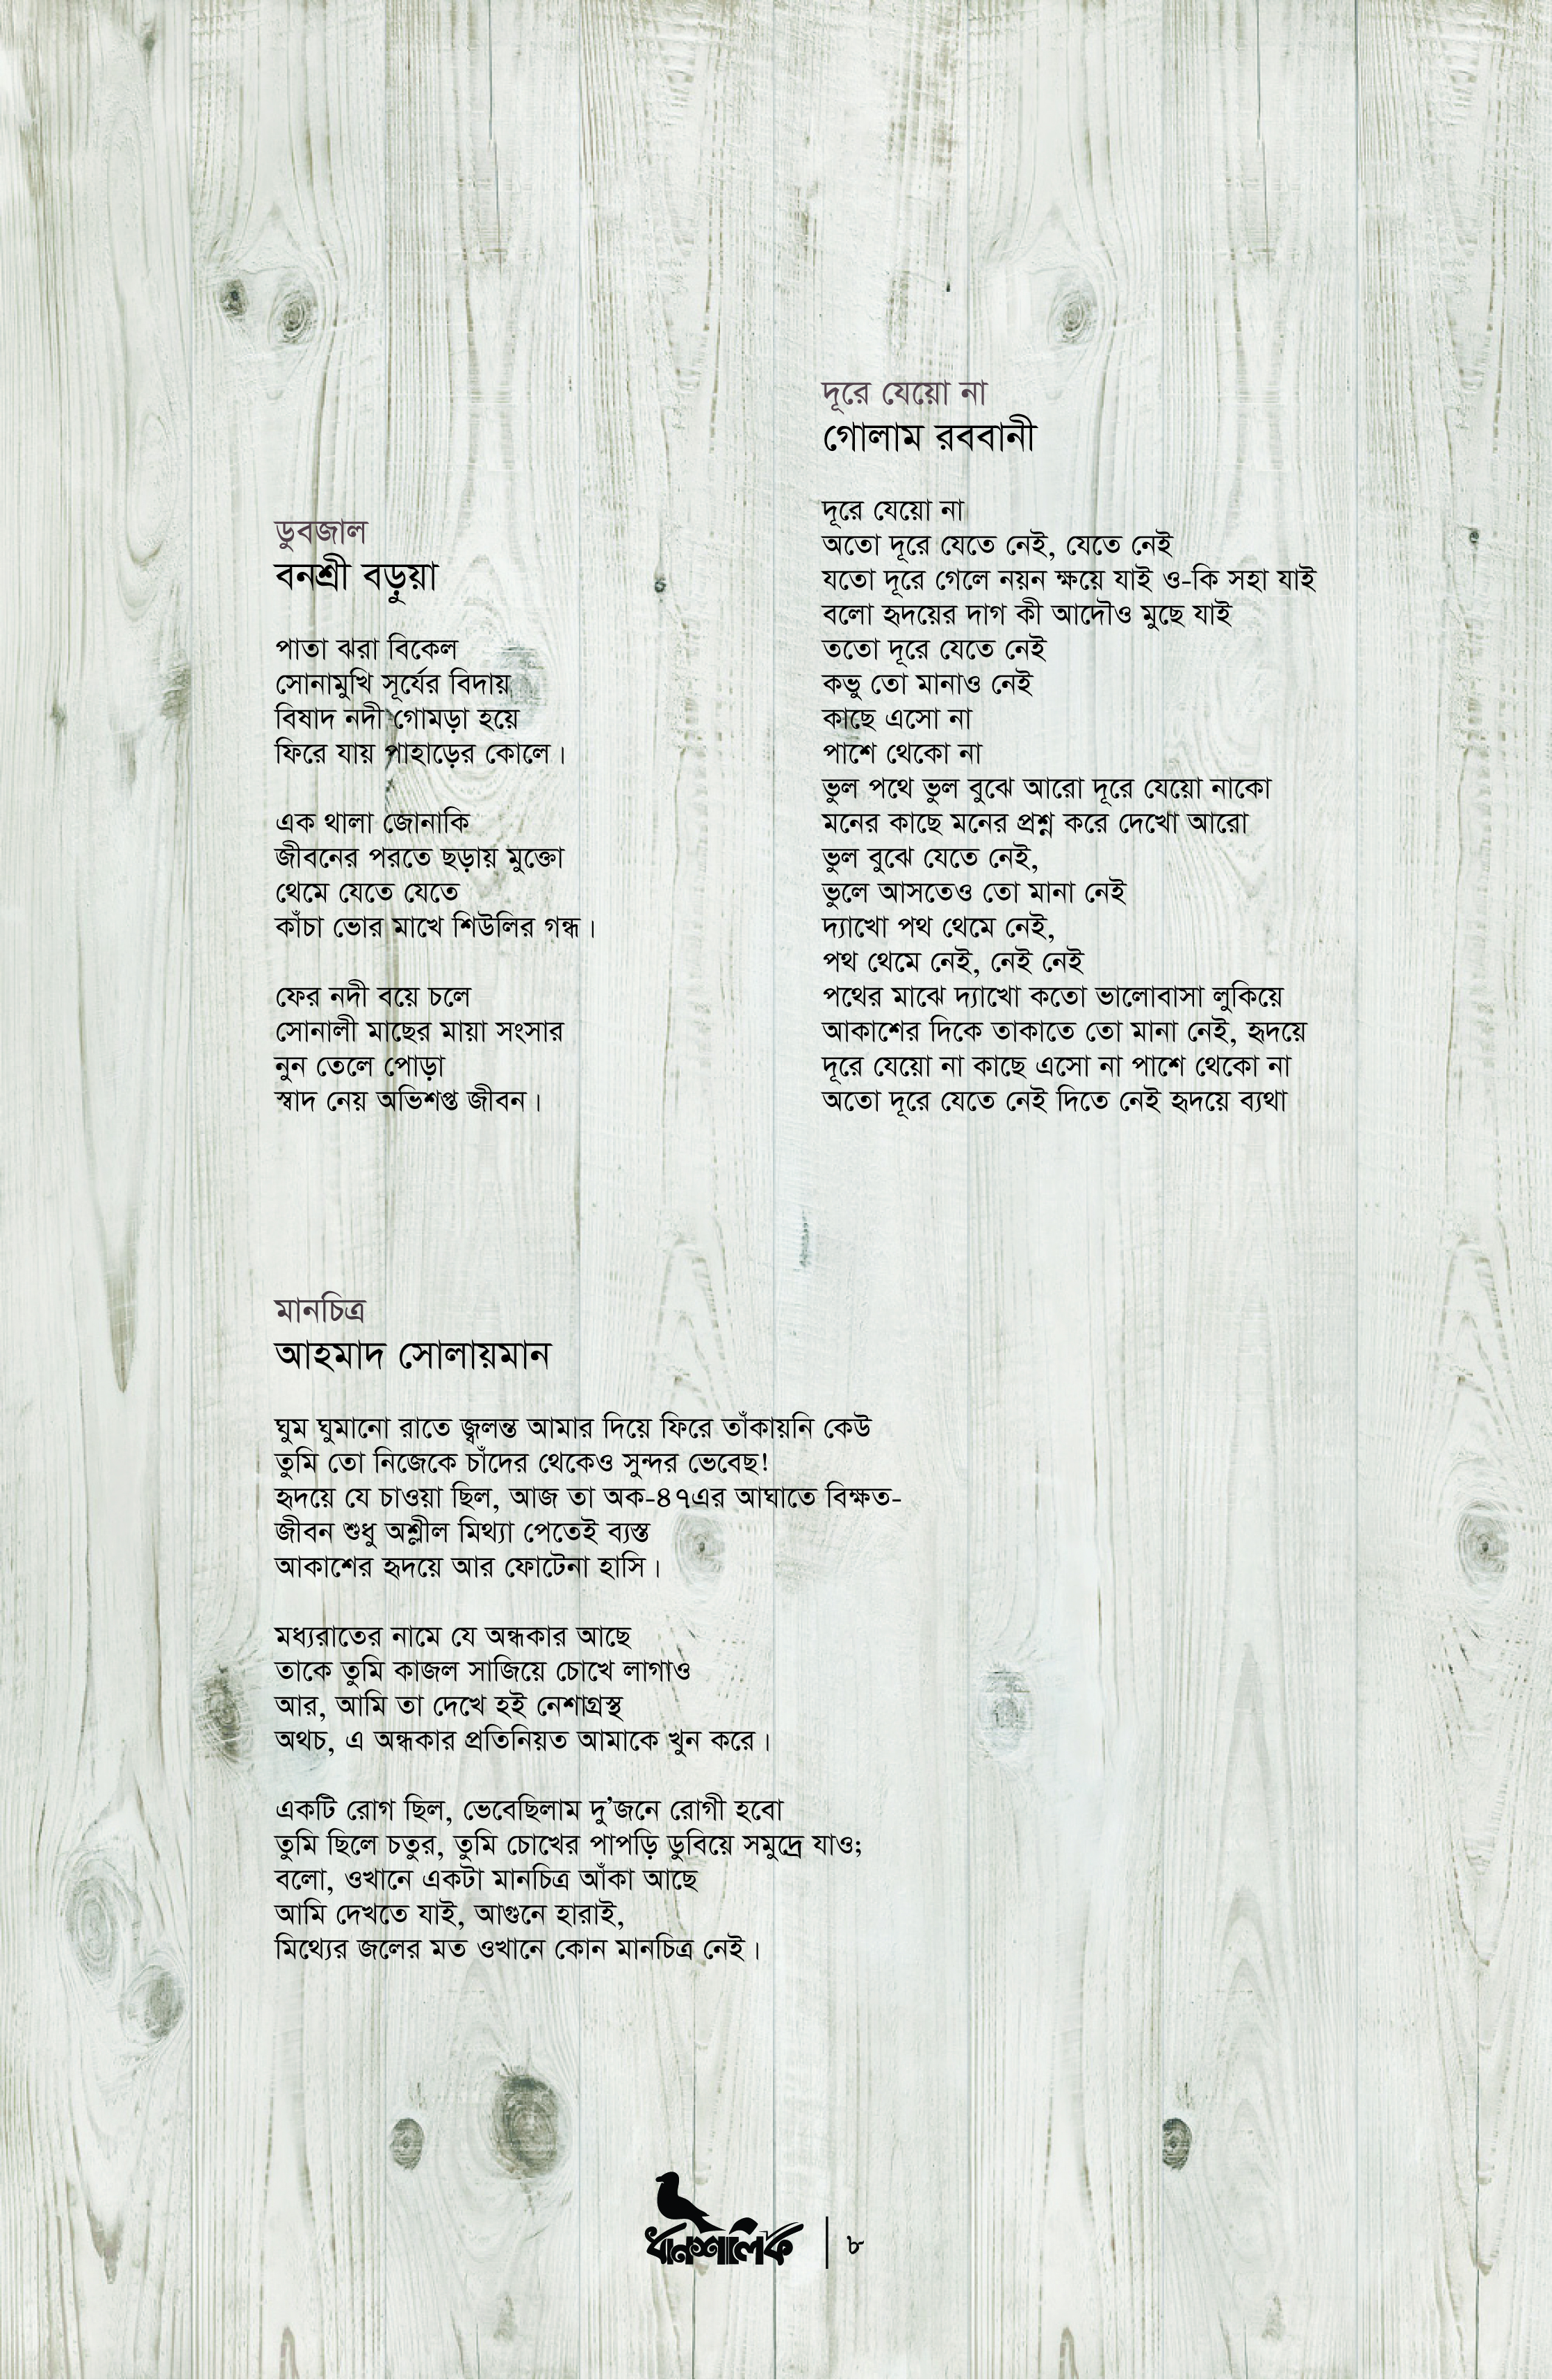 ডুবজাল
বনশ্রী বড়ুয়া
পাতা ঝরা বিকেল
সোনামুখি সূর্যের বিদায়
বিষাদ নদী গোমড়া হয়ে
ফিরে যায় পাহাড়ের কোলে।
এক থালা জোনাকি
জীবনের পরতে ছড়ায় মুক্তো
থেমে যেতে যেতে
কাঁচা ভোর মাখে শিউলির গন্ধ।
ফের নদী বয়ে চলে
সোনালী মাছের মায়া সংসার
নুন তেলে পোড়া
স্বাদ নেয় অভিশপ্ত জীবন।
দূরে যেয়ো না
গোলাম রববানী
দূরে যেয়ো না
অতো দূরে যেতে নেই, যেতে নেই
যতো দূরে গেলে নয়ন ক্ষয়ে যাই ও-কি সহা যাই
বলো হৃদয়ের দাগ কী আদৌও মুছে যাই
ততো দূরে যেতে নেই
কভু তো মানাও নেই
কাছে এসো না
পাশে থেকো না
ভুল পথে ভুল বুঝে আরো দূরে যেয়ো নাকো
মনের কাছে মনের প্রশ্ন করে দেখো আরো
ভুল বুঝে যেতে নেই,
ভুলে আসতেও তো মানা নেই
দ্যাখো পথ থেমে নেই,
পথ থেমে নেই, নেই নেই
পথের মাঝে দ্যাখো কতো ভালোবাসা লুকিয়ে
আকাশের দিকে তাকাতে তো মানা নেই, হৃদয়ে
দূরে যেয়ো না কাছে এসো না পাশে থেকো না
অতো দূরে যেতে নেই দিতে নেই হৃদয়ে ব্যথা
মানচিত্র
আহমাদ সোলায়মান
ঘুম ঘুমানো রাতে জ্বলন্ত আমার দিয়ে ফিরে তাঁকায়নি কেউ
তুমি তো নিজেকে চাঁদের থেকেও সুন্দর ভেবেছ!
হৃদয়ে যে চাওয়া ছিল, আজ তা অক-৪৭এর আঘাতে বিক্ষত-
জীবন শুধু অশ্লীল মিথ্যা পেতেই ব্যস্ত
আকাশের হৃদয়ে আর ফোটেনা হাসি।
মধ্যরাতের নামে যে অন্ধকার আছে
তাকে তুমি কাজল সাজিয়ে চোখে লাগাও
আর, আমি তা দেখে হই নেশাগ্রস্থ
অথচ, এ অন্ধকার প্রতিনিয়ত আমাকে খুন করে।
একটি রোগ ছিল, ভেবেছিলাম দু’জনে রোগী হবো
তুমি ছিলে চতুর, তুমি চোখের পাপড়ি ডুবিয়ে সমুদ্রে যাও;
বলো, ওখানে একটা মানচিত্র আঁকা আছে
আমি দেখতে যাই, আগুনে হারাই,
মিথ্যের জলের মত ওখানে কোন মানচিত্র নেই।
ধানশালিক | ৮